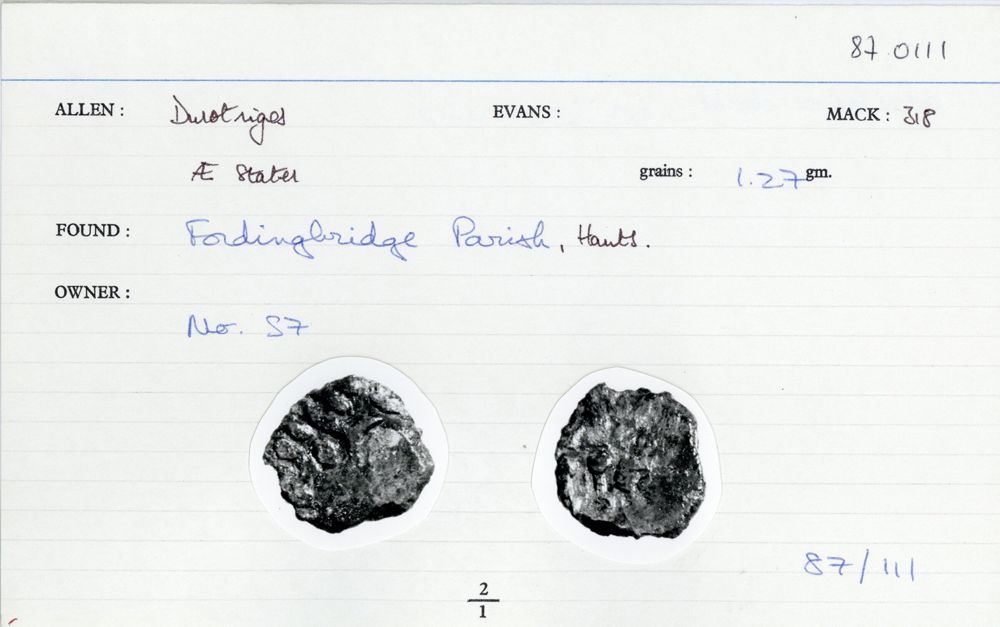 87.0111
ALLEN : Durotriges EVANS : MACK : 318
Æ Stater grains : 1.27 gm.
FOUND : Fordingbridge Parish, Hants.
OWNER :
No. S7
87/111
2
1